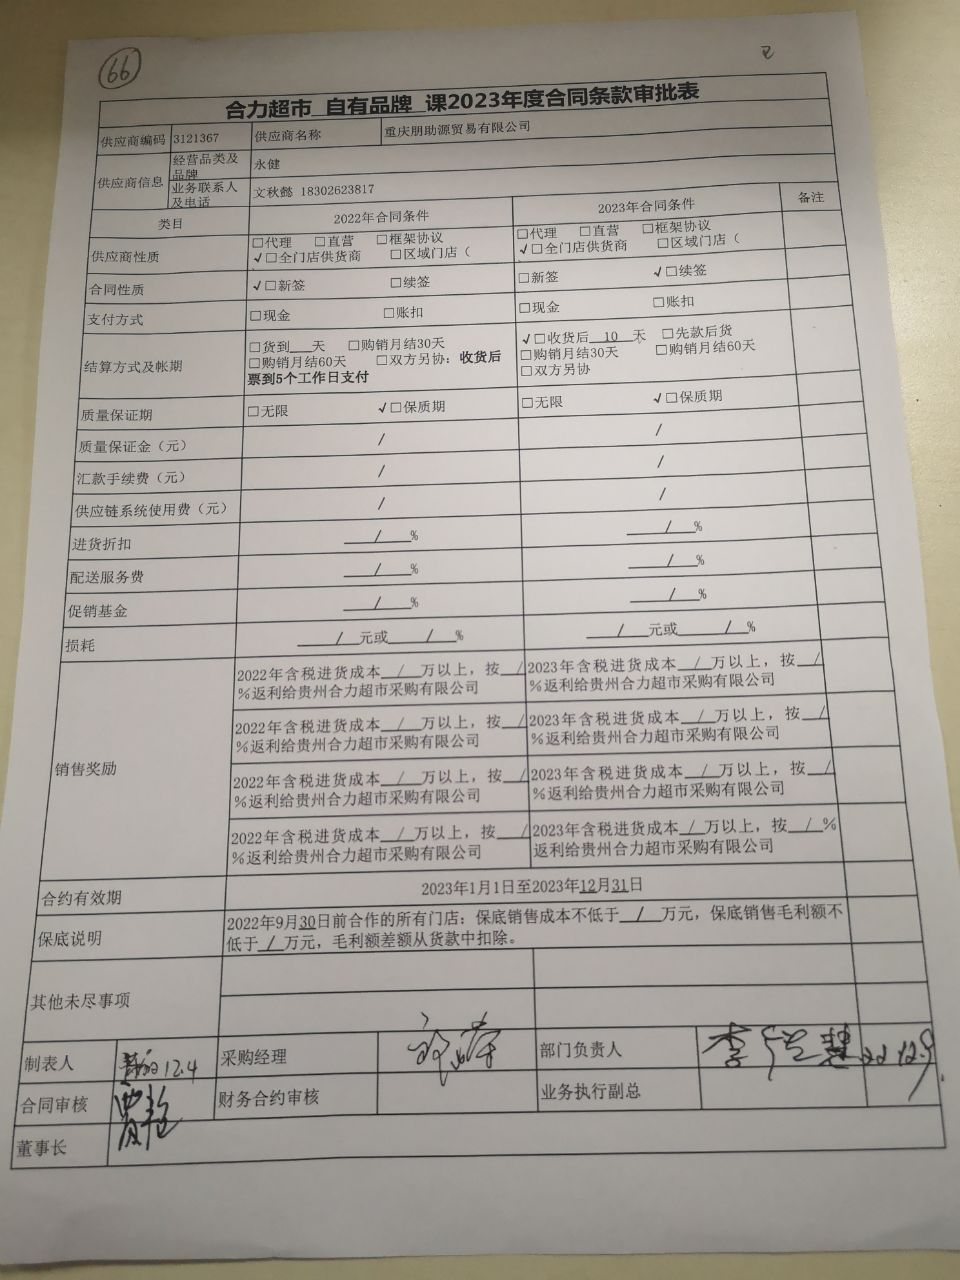 66
合力超市 自有品牌 课2023年度合同条款审批表
供应商编码 3121367 供应商名称 重庆朋助源贸易有限公司
供应商信息 经营品类及品牌 永健
业务联系人及电话 文秋懿 18302623817
类目 2022年合同条件 2023年合同条件 备注
供应商性质 □代理 □直营 □框架协议 □代理 □直营 □框架协议
✓□全门店供货商 □区域门店( ✓□全门店供货商 □区域门店(
合同性质 ✓□新签 □续签 □新签 ✓□续签
支付方式 □现金 □账扣 □现金 □账扣
结算方式及帐期 □货到___天 □购销月结30天 ✓□收货后 10 天 □先款后货
□购销月结60天 □双方另协：收货后 □购销月结30天 □购销月结60天
票到5个工作日支付 □双方另协
质量保证期 □无限 ✓□保质期 □无限 ✓□保质期
质量保证金（元） / /
汇款手续费（元） / /
供应链系统使用费（元） / /
进货折扣 / % / %
配送服务费 / % / %
促销基金 / % / %
损耗 / 元或 / % / 元或 / %
销售奖励
2022年含税进货成本 / 万以上，按 / 2023年含税进货成本 / 万以上，按 /
%返利给贵州合力超市采购有限公司 %返利给贵州合力超市采购有限公司
2022年含税进货成本 / 万以上，按 / 2023年含税进货成本 / 万以上，按 /
%返利给贵州合力超市采购有限公司 %返利给贵州合力超市采购有限公司
2022年含税进货成本 / 万以上，按 / 2023年含税进货成本 / 万以上，按 /
%返利给贵州合力超市采购有限公司 %返利给贵州合力超市采购有限公司
2022年含税进货成本 / 万以上，按 / 2023年含税进货成本 / 万以上，按 / %
%返利给贵州合力超市采购有限公司 返利给贵州合力超市采购有限公司
合约有效期 2023年1月1日至2023年12月31日
保底说明 2022年9月30日前合作的所有门店：保底销售成本不低于 / 万元，保底销售毛利额不
低于 / 万元，毛利额差额从货款中扣除。
其他未尽事项
制表人 12.4 采购经理 部门负责人 李 慧 22 12.9
合同审核 财务合约审核 业务执行副总
董事长